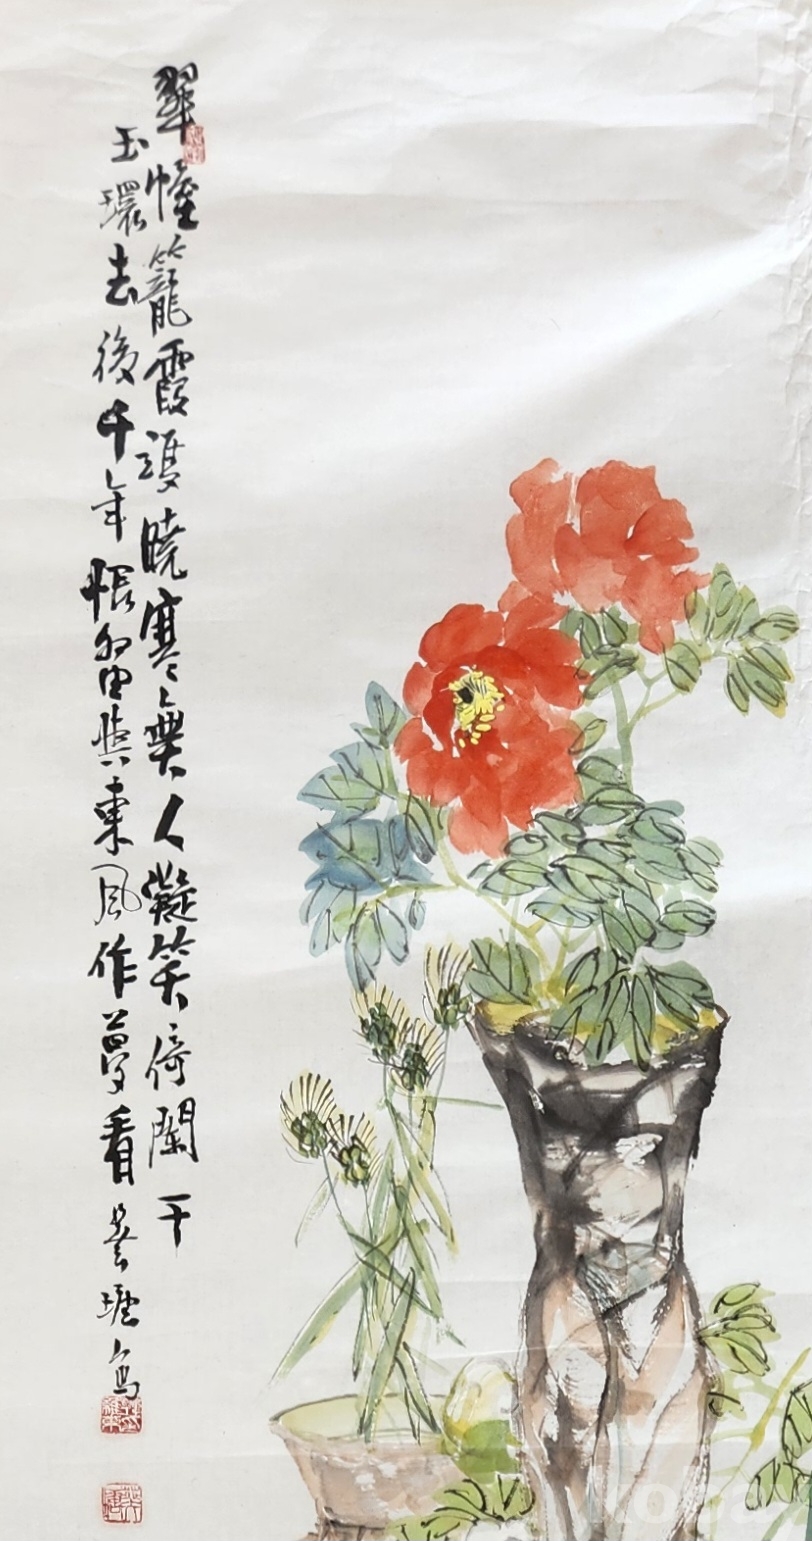 翠幄籠霞護曉寒無人凝笑倚闌干
玉環去後千年恨留與東風作夢看
koba